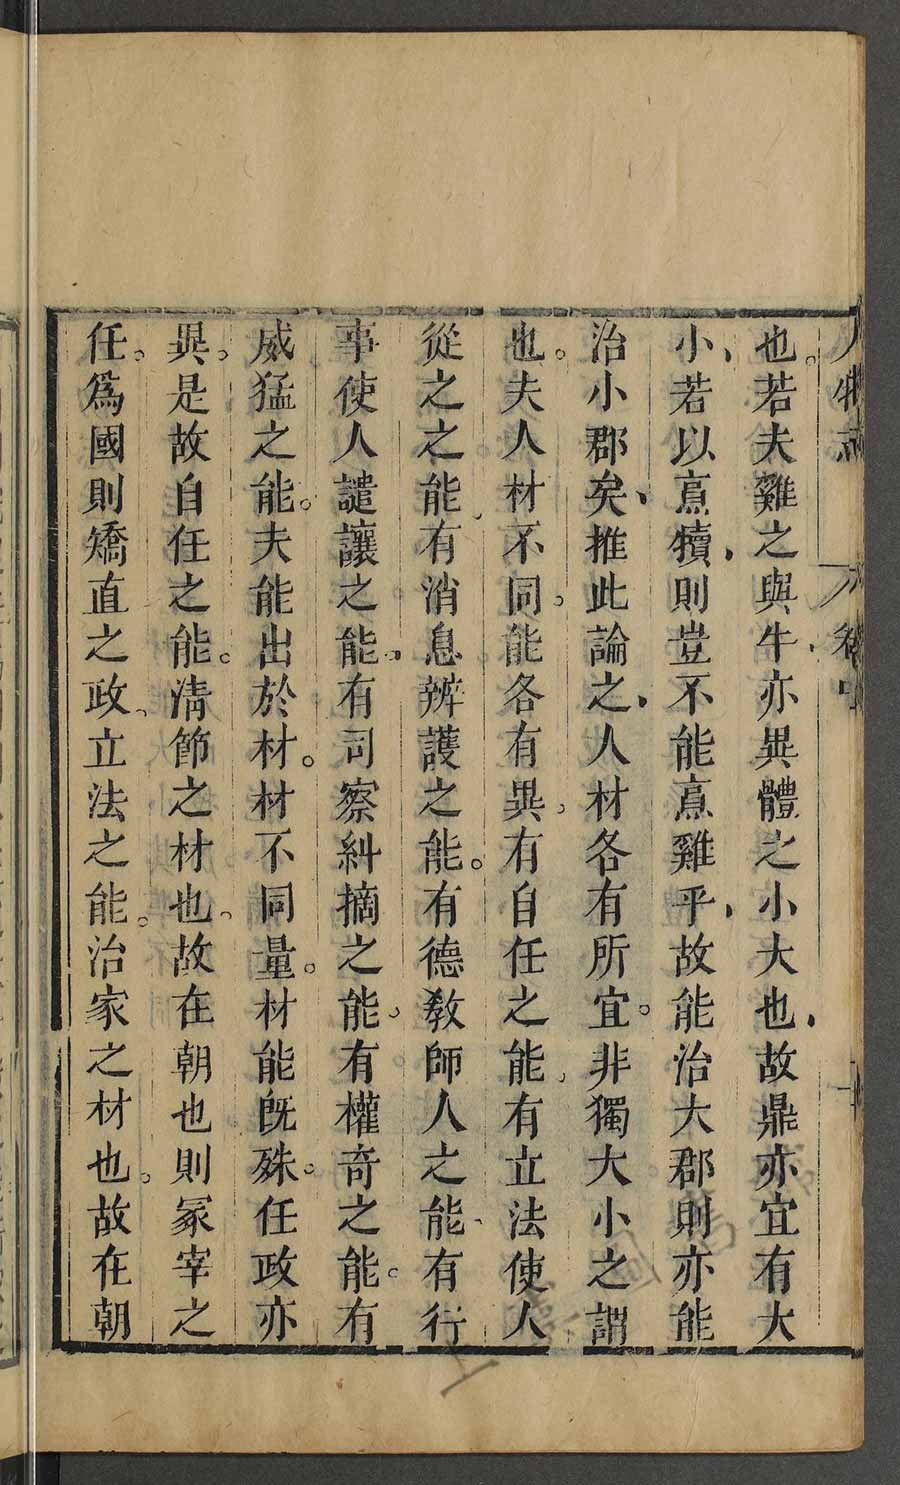 人物志 卷中
也若夫雞之與牛亦異體之小大也故鼎亦宜有大
小若以亯犢則豈不能亯雞乎故能治大郡則亦能
治小郡矣推此論之人材各有所宜非獨大小之謂
也夫人材不同能各有異有自任之能有立法使人
從之之能有消息辨護之能有德敎師人之能有行
事使人譴讓之能有司察糾摘之能有權奇之能有
威猛之能夫能出於材材不同量材能旣殊任政亦
異是故自任之能淸節之材也故在朝也則冢宰之
任爲國則矯直之政立法之能治家之材也故在朝